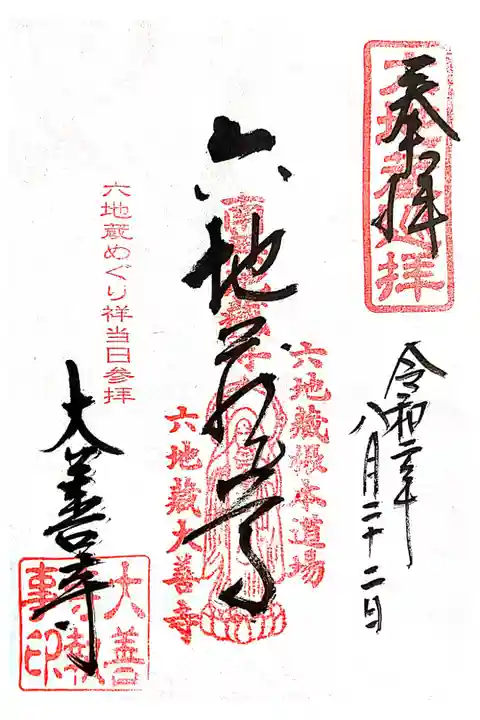 奉拝
六地蔵巡拝
令和二年
八月二十二日
六地蔵尊
六地蔵根本道場
六地蔵大善寺
六地蔵めぐり祥当日参拝
大善寺
大善寺執事印